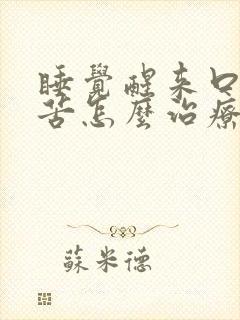 睡覺醒来口
苦怎麼治療
蘇米德